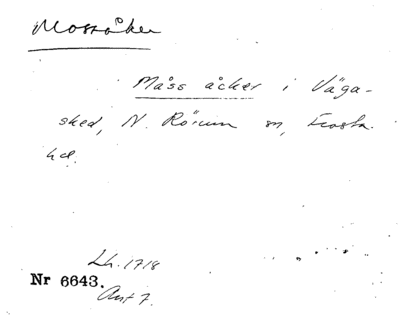 Mossåker
Måss åcker i Väga-
sked, N. Rörum sn, Frosta
hd.
Lh. 1718
Nr 6643.
Ant 7.